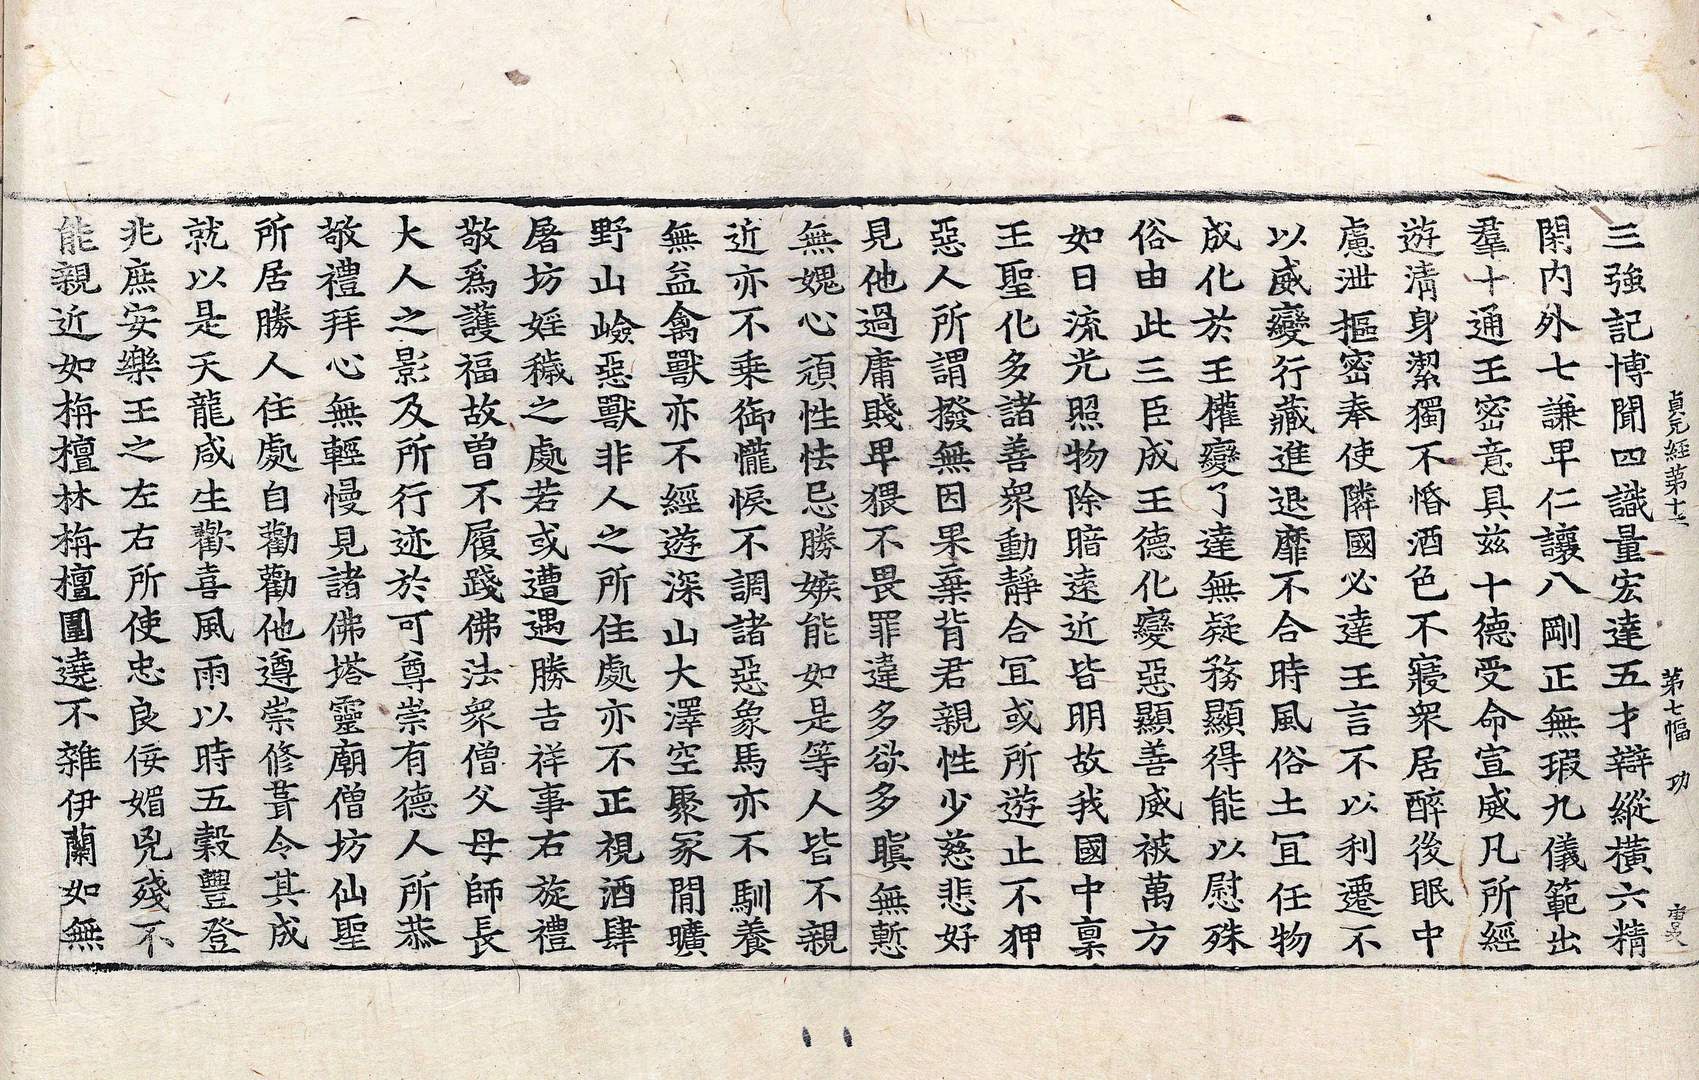 貞元經第十二 第七幅 功
三強記博聞四識量宏達五才辯縱橫六精
閑内外七謙卑仁讓八剛正無瑕九儀範出
羣十通王密意具茲十德受命宣威凡所經
遊清身潔獨不惛酒色不寢衆居醉後眠中
慮泄摳密奉使隣國必達王言不以利遷不
以威變行藏進退靡不合時風俗土冝任物
成化於王權變了達無疑務顯得能以慰殊
俗由此三臣成王德化變惡顯善威被萬方
如日流光照物除暗遠近皆明故我國中稟
王聖化多諸善衆動靜合冝或所遊止不狎
惡人所謂撥無因果棄背君親性少慈悲好
見他過庸賤卑猥不畏罪違多欲多瞋無慙
無媿心頑性怯忌勝嫉能如是等人皆不親
近亦不乗御儱悷不調諸惡象馬亦不馴養
無益禽獸亦不經遊深山大澤空聚冢間曠
野山嶮惡獸非人之所住處亦不正視酒肆
屠坊婬穢之處若或遭遇勝吉祥事右旋禮
敬爲護福故曽不履踐佛法衆僧父母師長
大人之影及所行迹於可尊崇有德人所恭
敬禮拜心無輕慢見諸佛塔靈廟僧坊仙聖
所居勝人住處自勸勸他遵崇修葺令其成
就以是天龍咸生歡喜風雨以時五穀豐登
兆庶安樂王之左右所使忠良佞媚兇殘不
能親近如栴檀林栴檀圍遶不雜伊蘭如無